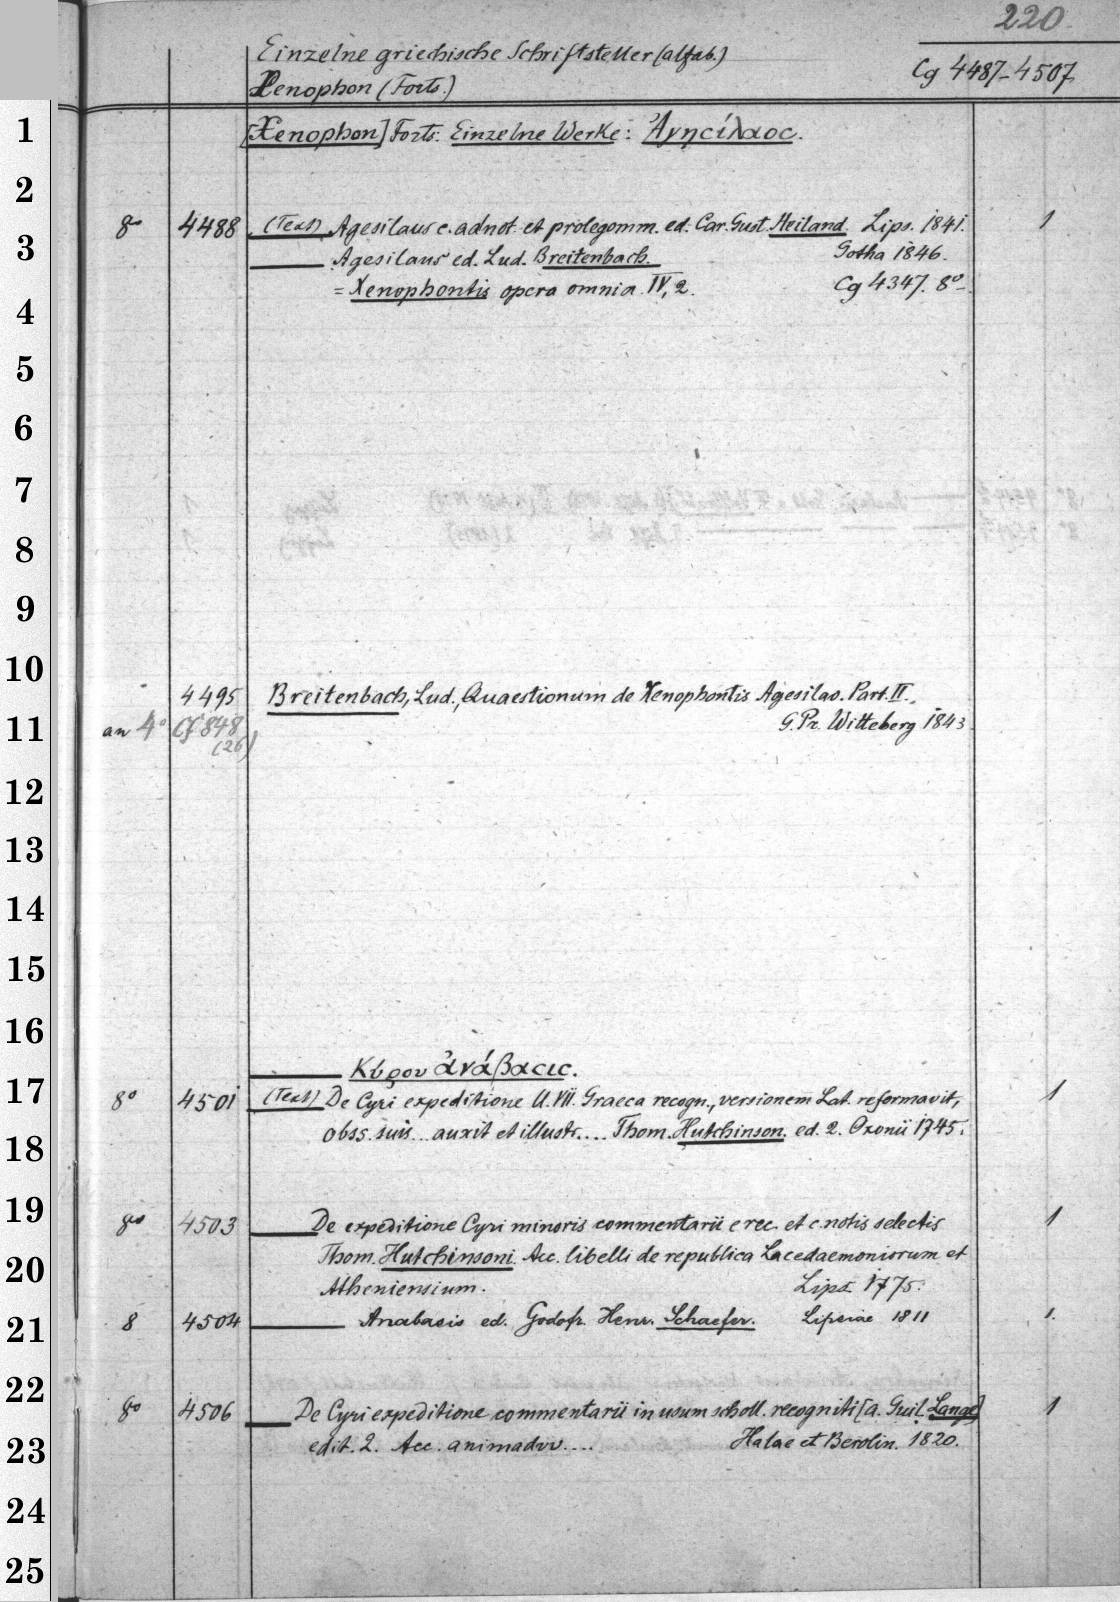 220
Einzelne griechische Schriftsteller (alfab.)
Cg 4487-4507
Xenophon (Forts.)
1 [Xenophon] Forts: Einzelne Werke: Ἀγησίλαος.
2
8° 4488 (Text) Agesilaus c. adnot. et prolegomm. ed. Car. Gust. Heiland. Lips. 1841. 1
3 Agesilaus ed. Lud. Breitenbach. Gotha 1846.
= Xenophontis opera omnia IV, 2. Cg 4347. 8°
4
5
6
7
8
9
10
4495 Breitenbach, Lud., Quaestionum de Xenophontis Agesilao. Part. II.
11 an 4° Cf 848 G. Pr. Witteberg 1843
(26)
12
13
14
15
16
Κύρου ἀνάβασις.
17 8° 4501 (Text) De Cyri expeditione ll. VII. Graeca recogn., versionem Lat. reformavit, 1
18 obss. suis... auxit et illustr.... Thom. Hutchinson. ed. 2. Oxonii 1745.
19 8° 4503 De expeditione Cyri minoris commentarii e rec. et c. notis selectis 1
20 Thom. Hutchinsoni. Acc. libelli de republica Lacedaemoniorum et
Atheniensium. Lips. 1775.
21 8 4504 Anabasis ed. Godofr. Henr. Schaefer. Lipsiae 1811 1.
22
8° 4506 De Cyri expeditione commentarii in usum scholl. recogniti [a. Guil. Lange] 1
23 edit. 2. Acc. animadvv.... Halae et Berolin. 1820.
24
25